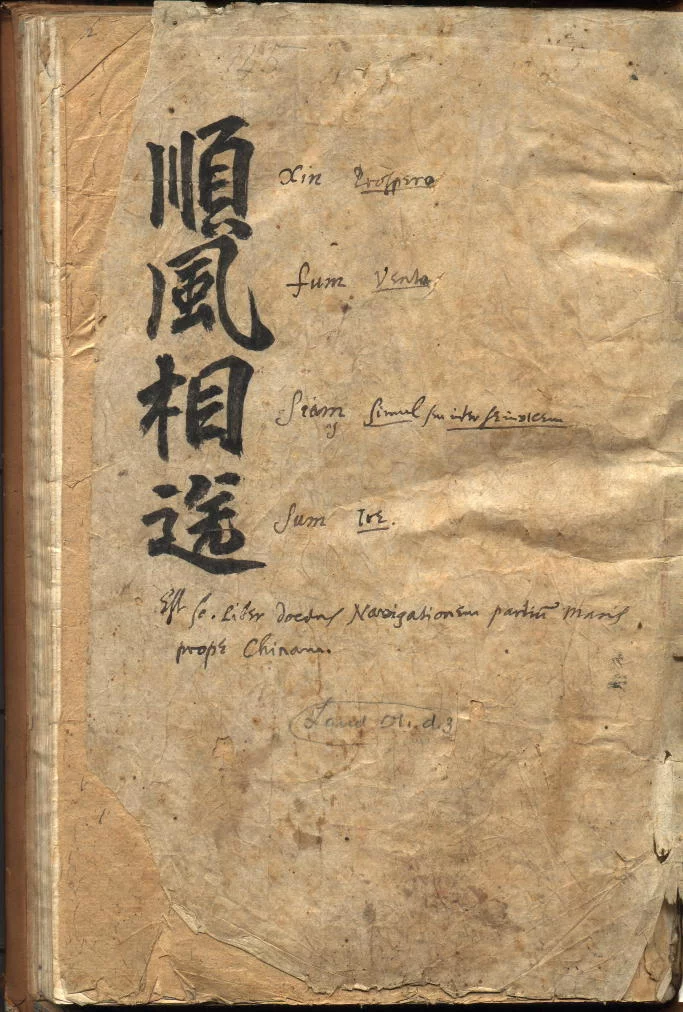 順 Xin Prospero
風 fum Vento
相 Siam Simul seu inter se invicem
送 Sum Ire.
Est sc. Liber docens Navigationem partiū Maris
prope Chinam.
Laud Or. d. 3